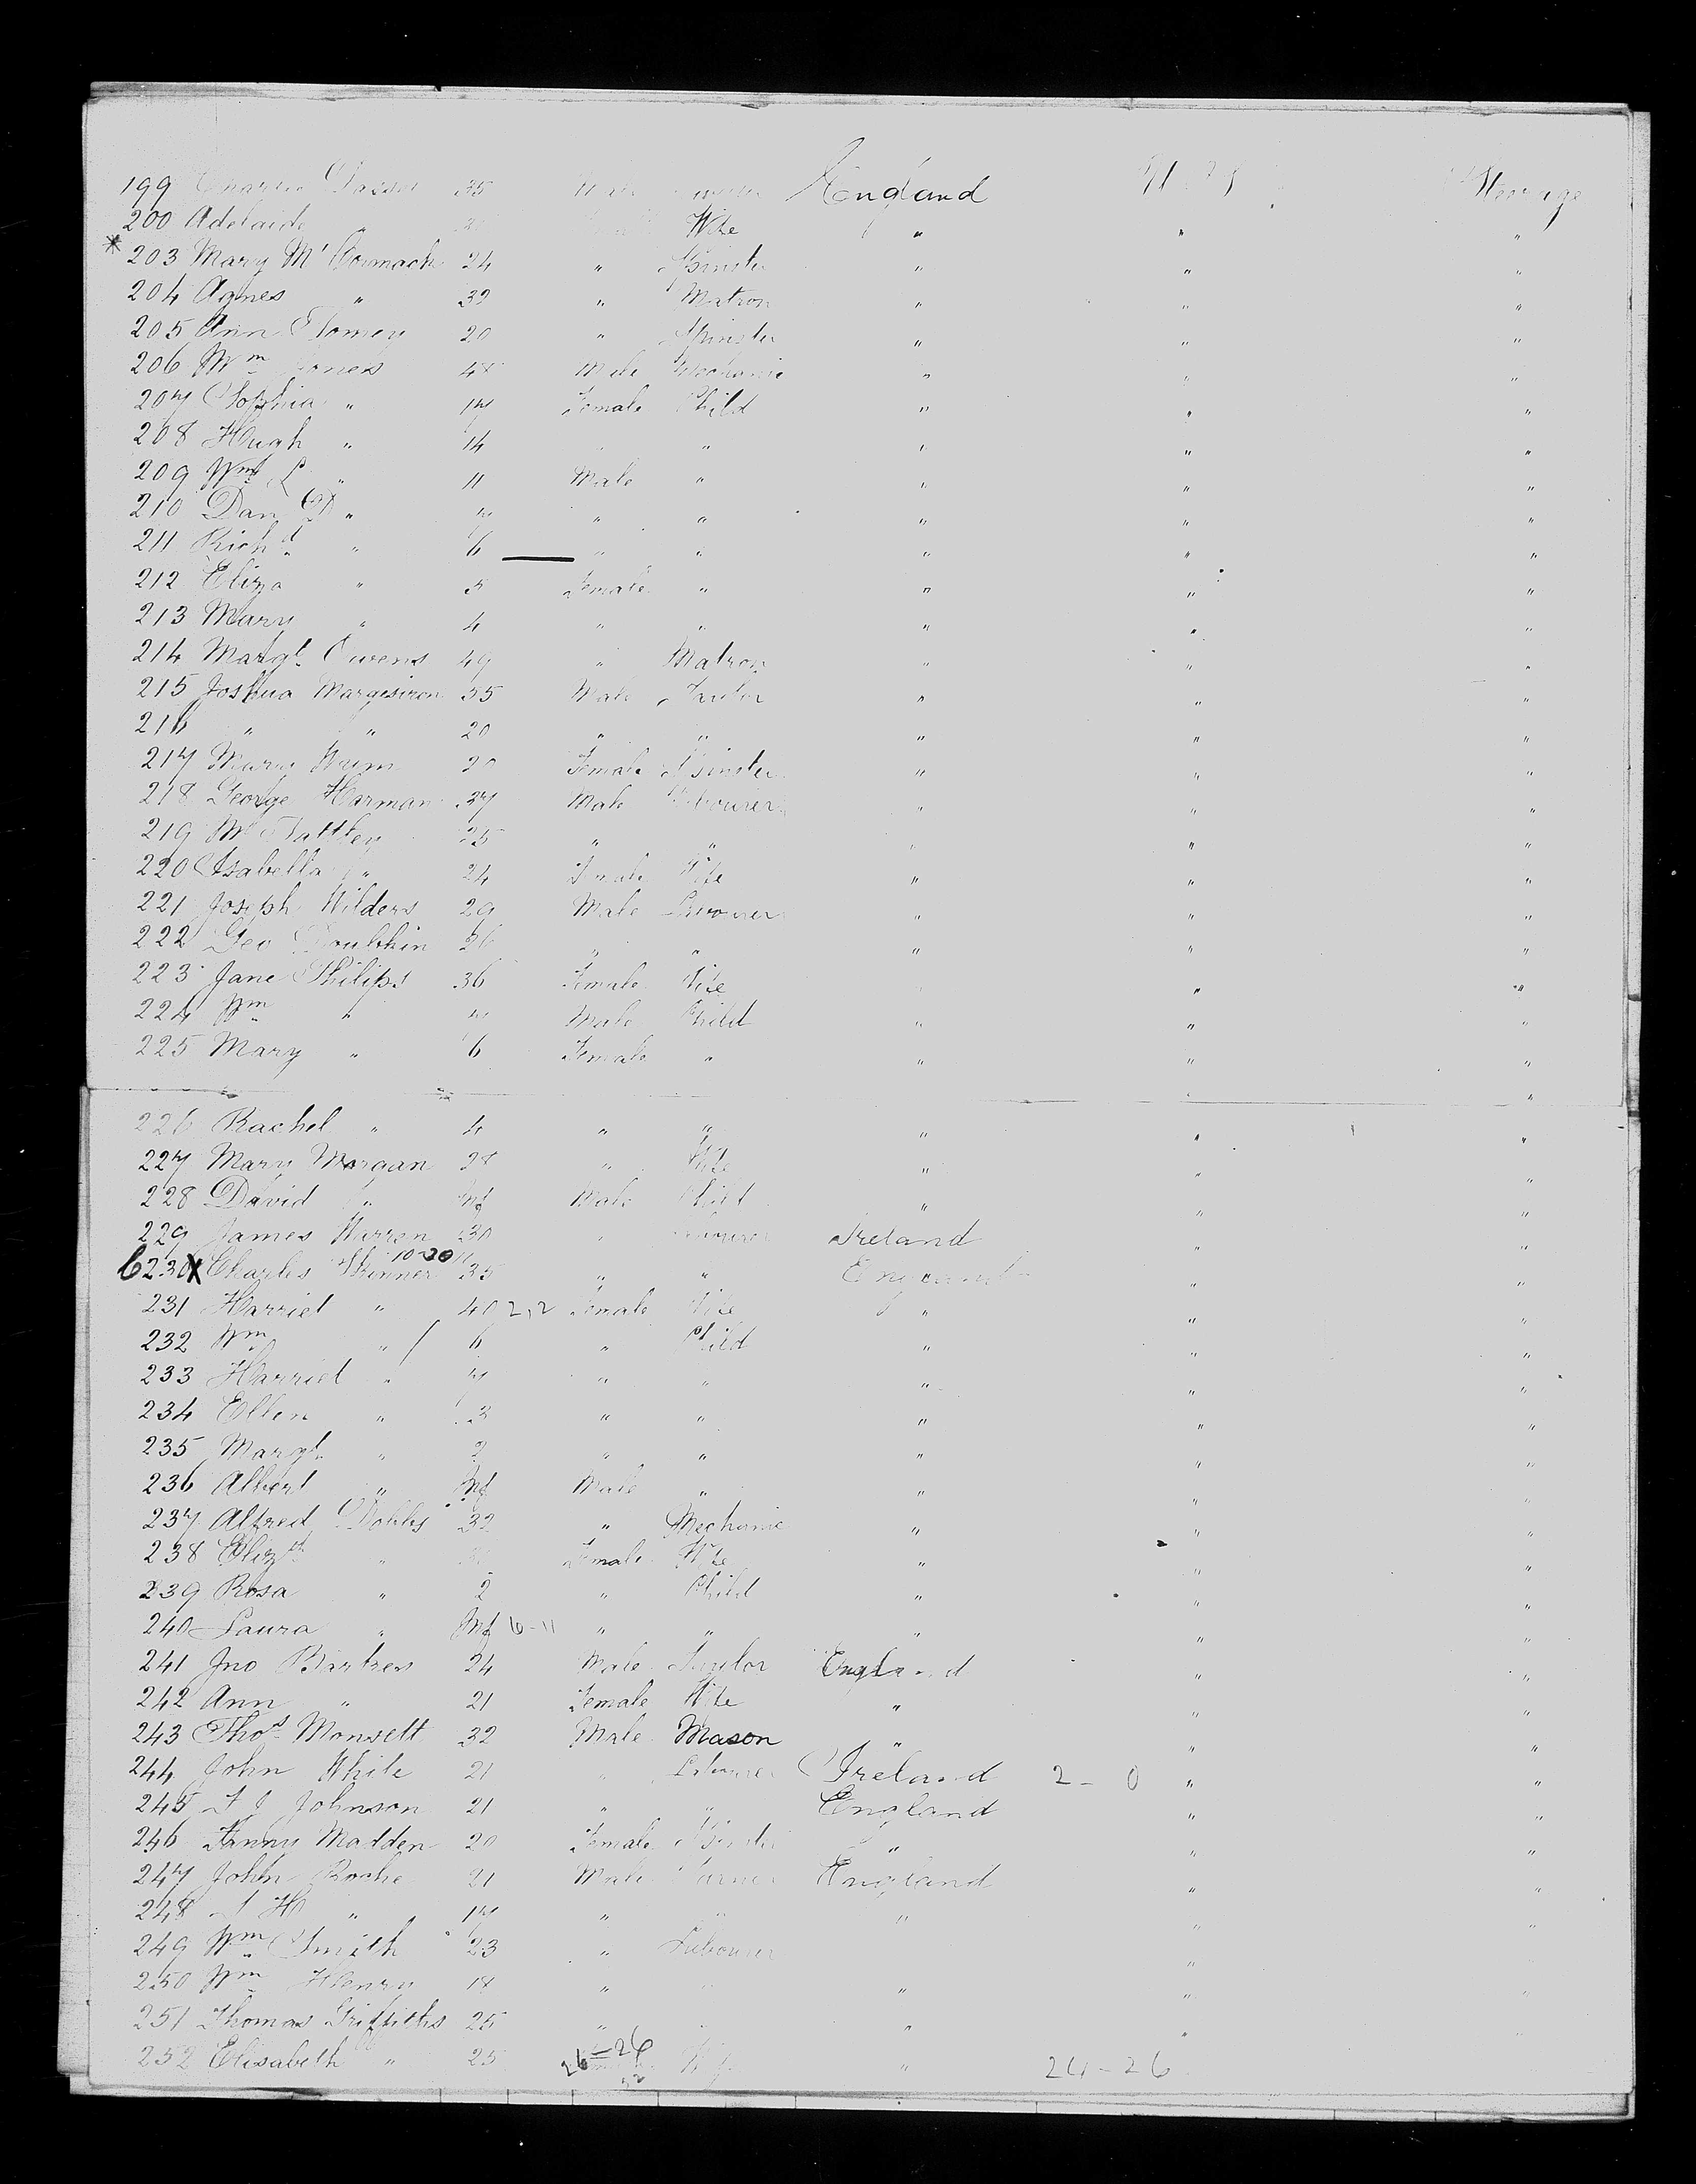 199 35 England Steerage
200 Adelaide " Wife " " "
* 203 Mary Mc Cormack 24 " Spinster " " "
204 Agnes " 39 " Matron " " "
205 Ann 20 " Spinster " " "
206 Wm Jones 48 Male Mechanic " " "
207 Sophia " 17 Female Child " " "
208 Hugh " 14 " " " " "
209 Wm L " 11 Male " " " "
210 Dan D " 7 " " " " "
211 Richd " 6 " " " " "
212 Eliza " 5 Female " " " "
213 Mary " 4 " " " " "
214 Margt Owens 49 " Matron " " "
215 Joshua 35 Male Taylor " " "
216 " " 20 " " " " "
217 Mary 20 Female Spinster " " "
218 George Harman 37 Male Labourer " " "
219 25 " " " " "
220 Isabella " 24 Female Wife " " "
221 Joseph Wilders 29 Male Labourer " " "
222 Geo 26 " " " " "
223 Jane Philips 36 Female Wife " " "
224 Wm " 7 Male Child " " "
225 Mary " 6 Female " " " "
226 Rachel " 4 " " " " "
227 Mary Morgan 28 " Wife " " "
228 David " Inf Male Child " " "
229 James Warren 30 " Labourer Ireland " "
6 230 X Charles Skinner 10-20 35 " " England " "
231 Harriet " 40 2,2 Female Wife " " "
232 Wm " 6 " Child " " "
233 Harriet " 7 " " " " "
234 Ellen " 3 " " " " "
235 Margt " 2 " " " " "
236 Albert " Inf Male " " " "
237 Alfred Dobbs 32 " Mechanic " " "
238 Elizth " Female Wife " " "
239 Rosa " 2 " Child " " "
240 Laura " Inf 6-11 " " " " "
241 Jno 24 Male Taylor England " "
242 Ann " 21 Female Wife " " "
243 Thos Monsett 32 Male Mason " " "
244 John White 21 " Labourer Ireland 2-0 " "
245 Johnson 21 " " England " "
246 Fanny Madden 20 Female Spinster " " "
247 John Roche 21 Male Farmer England " "
248 H " 17 " " " " "
249 Wm Smith 23 " Labourer "
250 Wm Henry 18 " " "
251 Thomas Griffiths 25 " " "
252 Elisabeth " 25 26-26 " 24-26